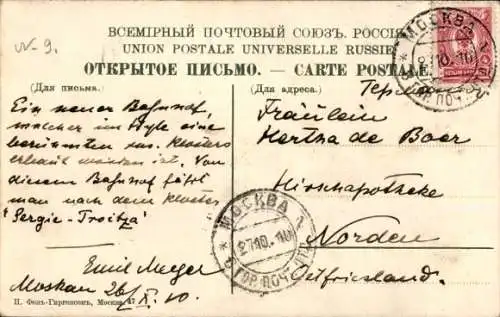 N-9.
ВСЕМІРНЫЙ ПОЧТОВЫЙ СОЮЗЪ. РОССІЯ
UNION POSTALE UNIVERSELLE RUSSIE
ОТКРЫТОЕ ПИСЬМО. — CARTE POSTALE.
(Для письма.)
(Для адреса.)
Ein neuer Bahnhof,
welcher im Style eine
berühmten rus. Klosters
erbaut worden ist. Von
diesem Bahnhof fährt
man nach dem Kloster
"Sergie-Troitza"
Emil Meyer
Moskau 26/X. 10
Fräulein
Hertha de Boer
Hirschapotheke
Norden
Ostfriesland.
МОСКВА 1
27.10.10
ГОР. ПОЧТ.
МОСКВА
10.10
ГОР. ПОЧТ.
П. Фонъ-Гиргенсонъ, Москва.